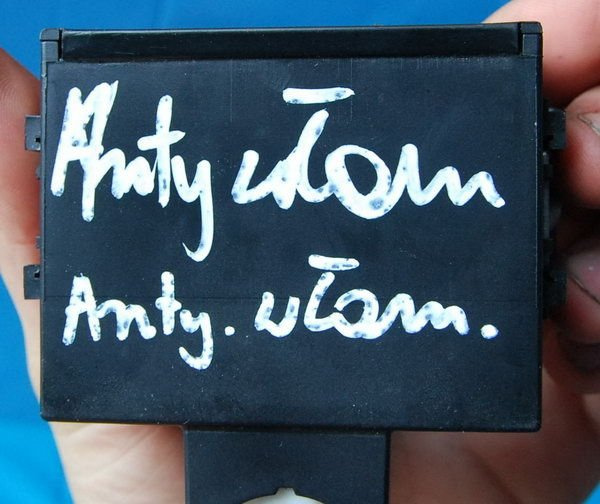 Anty włam
Anty. włam.